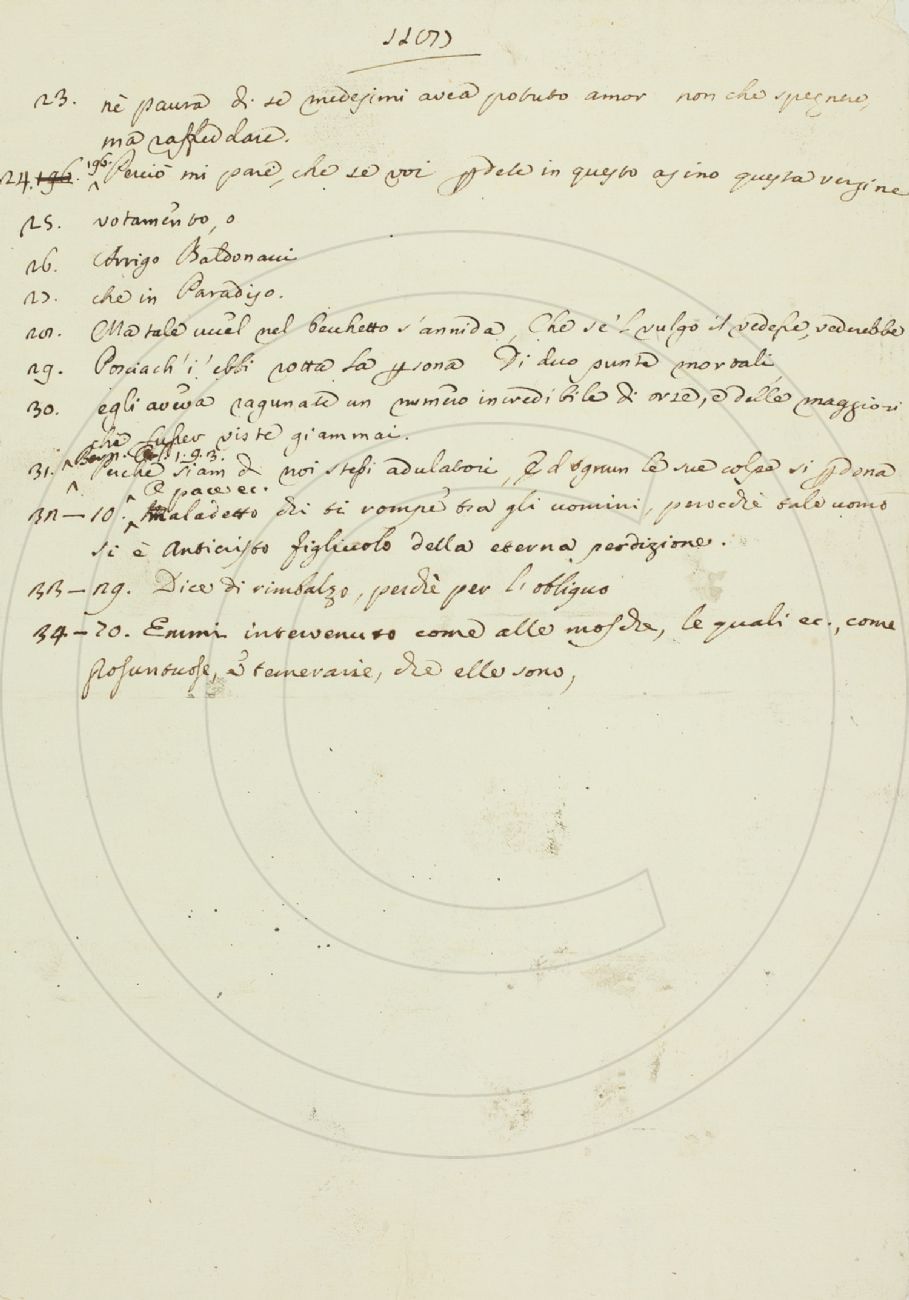 23. nè paura di se medesimi avea potuto amor non che spegnere,
ma raffreddare.
24. 196. 196. Perciò mi pare, che se voi pdete in questo asino questa vergine
25. votamento, o
26. Arrigo Baldonaui
27. che in Paradiso.
28. Ma tale uccel nel becchetto s'annida, Che se'l vulgo il vedesse, vederebbe
29. Posciach'i' ebbi rotta la psona Di duo punte mortali
30. egli aveva ragunate un numero incredibile di orse, e delle maggiori
che fusser viste giammai.
31. Bern. 1. 9. 3. Perchè siam di noi stessi adulatori, E ad ognun le sue colpe si pdona
E pace ec.
32 — 10. Maladetto chi ti rompe tra gli uomini, perocchè tale uomo
si è Anticristo figliuolo della eterna perdizione.
33 — 29. Dice di rimbalzo, perchè per l'obliquo
34 — 70. Emmi intervenuto come alle mosche, le quali ec., come
psuntuose, e temerarie, che elle sono,